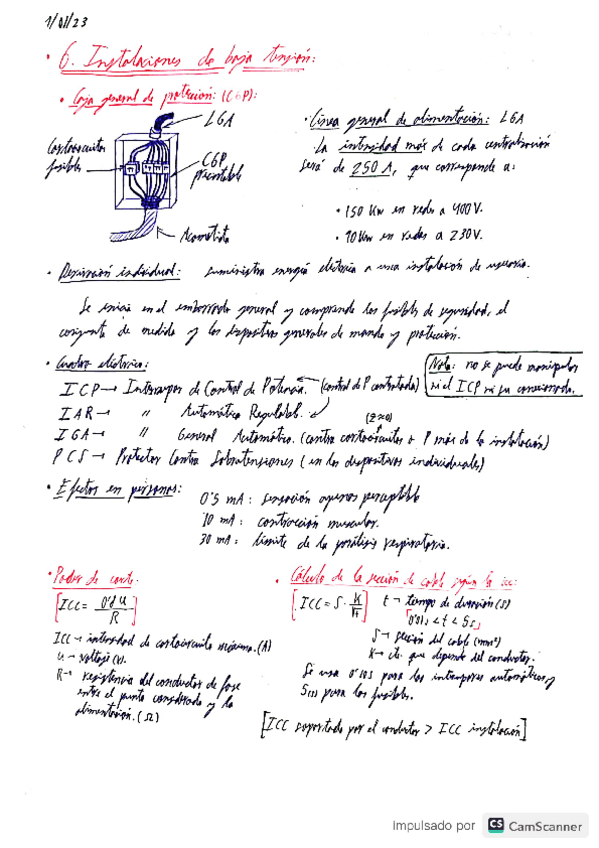 1/01/23
· 6. Instalaciones de baja tensión:
· Caja general de protección: (CGP):
LGA
Cortocircuitos
fusibles
CGP
precintable
Acometida
· Línea general de alimentación: LGA
La intensidad máx de cada centralización
será de 250 A, que corresponde a:
· 150 Kw en redes a 400V.
· 90 Kw en redes a 230V.
· Derivación individual: suministra energía eléctrica a una instalación de usuario.
Se inicia en el embarrado general y comprende los fusibles de seguridad, el
conjunto de medida y los dispositivos generales de mando y protección.
· Cuadro eléctrico:
ICP → Interruptor de Control de Potencia. (control de P contratada)
Nota: no se puede manipular
ni el ICP ni su
IAR → " Automático Regulable.
(Z≈0)
IGA → " General Automático. (contra cortocircuitos o P máx de la instalación)
PCS → Protector Contra Sobretensiones (en los dispositivos individuales)
· Efectos en personas:
0'5 mA: sensación apenas perceptible
10 mA: contracción muscular.
30 mA: límite de la parálisis respiratoria.
· Poder de corte:
[ICC = 0'8 U / R]
ICC → intensidad de cortocircuito máxima. (A)
U → voltaje (V).
R → resistencia del conductor de fase
entre el punto considerado y la
alimentación. (Ω)
· Cálculo de la sección de cable según la icc:
[ICC = S · K / √t]
t → tiempo de duración (s)
[0'01s < t < 5s]
S → Sección del cable (mm²)
K → cte. que depende del conductor.
Se usa 0'10s para los interruptores automáticos y
5(s) para los fusibles.
[ICC soportado por el conductor > ICC instalación]
Impulsado por CS CamScanner